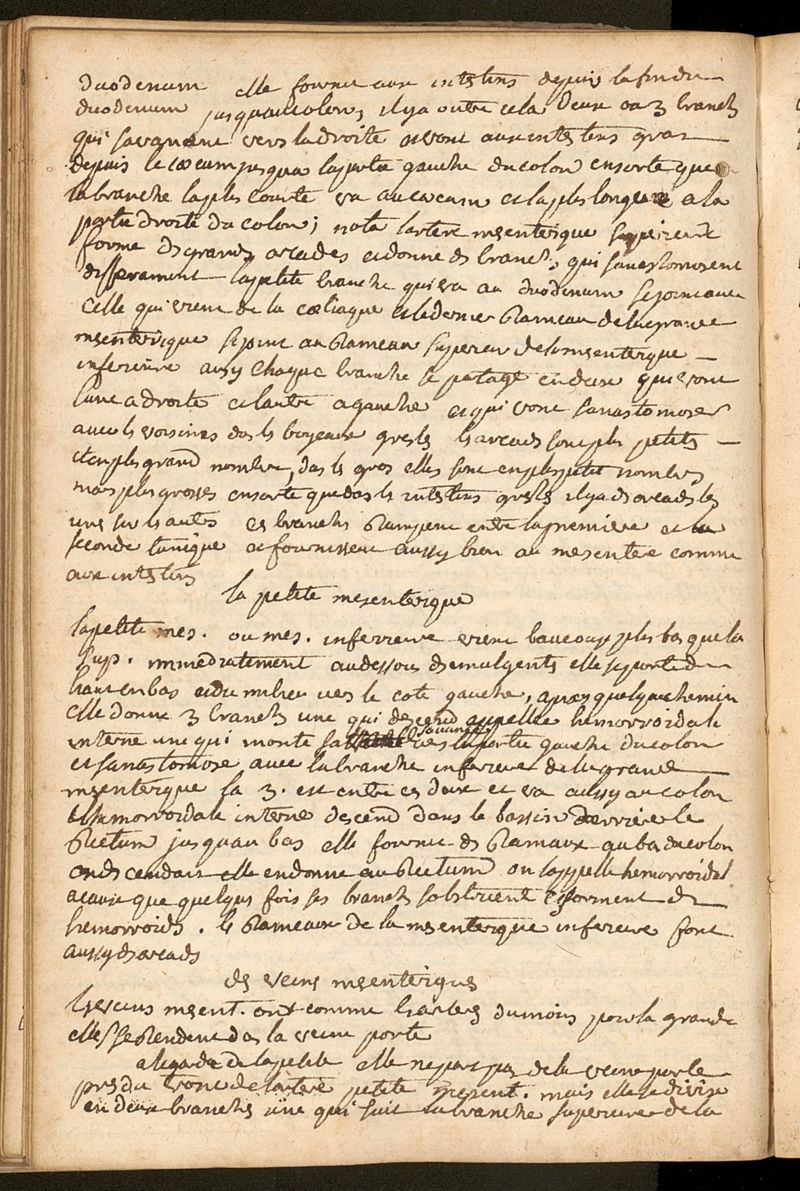 duodenum elle fournie aux intestins depuis la fin du
duodenum jusquaucolon, ilya outre cela deux ou 3 branch
qui savancent vers ladroite et vont aux intestins gros
depuis le cœcum jusqua lapartie gauche ducolon ensorte que
labranche laplus courte va aucœcum et laplus longue a la
partie droite du colon; nota lartere mesenterique superieure
forme de grands arcades et donne ds branch, qui sanastomosent
differament lapetite branche qui va au duodenum se joint avec
celle qui vient de la cœliaque et le dernier Rameau de la grande
mesenterique se joint au Rameau superieur de la mesenterique
inferieure aussy chaque branche se partage en deux qui vont
lune a droite et lautre a gauche et qui vont sanastomoser
avec ls voisines dans ls boyeaux gresls ls arcads sont plus petits
et en plus grand nombre, dans ls gros elles sont en plus petit nombre
mais plus grosses ensorte que dans ls intestins gresls il ya ds arcads ls
uns sur ls autres cs branchs Rampent entre la premiere et la
seconde tunique et fournissent aussy bien au mesentere comme
aux intestins
la petite mesenterique
lapetite mes. ou mes. inferieure vient beaucoup plus bas que la
sup. immediatement audessous ds emulgents elle se porte de
haut en bas et du milieu vers le coté gauche, apres quelque chemin
elle donne 3 branchs une qui descend appellee hemorroidale
interne une qui monte suivant vers la partie gauche du colon
et sanastomose avec la branche inferieure de la grande
mesenterique la 3. est entre cs deux et va aussy au colon
lhemorroidale interne descend dans le bassin derriere le
Rectum jusquau bas elle fournie ds Rameaux au bas du colon
en dscendant elle en donne au Rectum on lappelle hemorroidal
acause que quelques fois ses branchs sobstruent et forment ds
hemorroids. ls Rameaux de la mesenterique inferieure font
aussy ds arcads
ds veins mesenteriques
ls veins mesent. ont comme ls arters du moins pour la grande
elles se Rendent dans la veine porte
a legard de la petite elle ne part pas de la veine porte
pres du tronc de lartere petite mesent. mais elle se divise
en deux branchs une qui suit la branche superieure de la